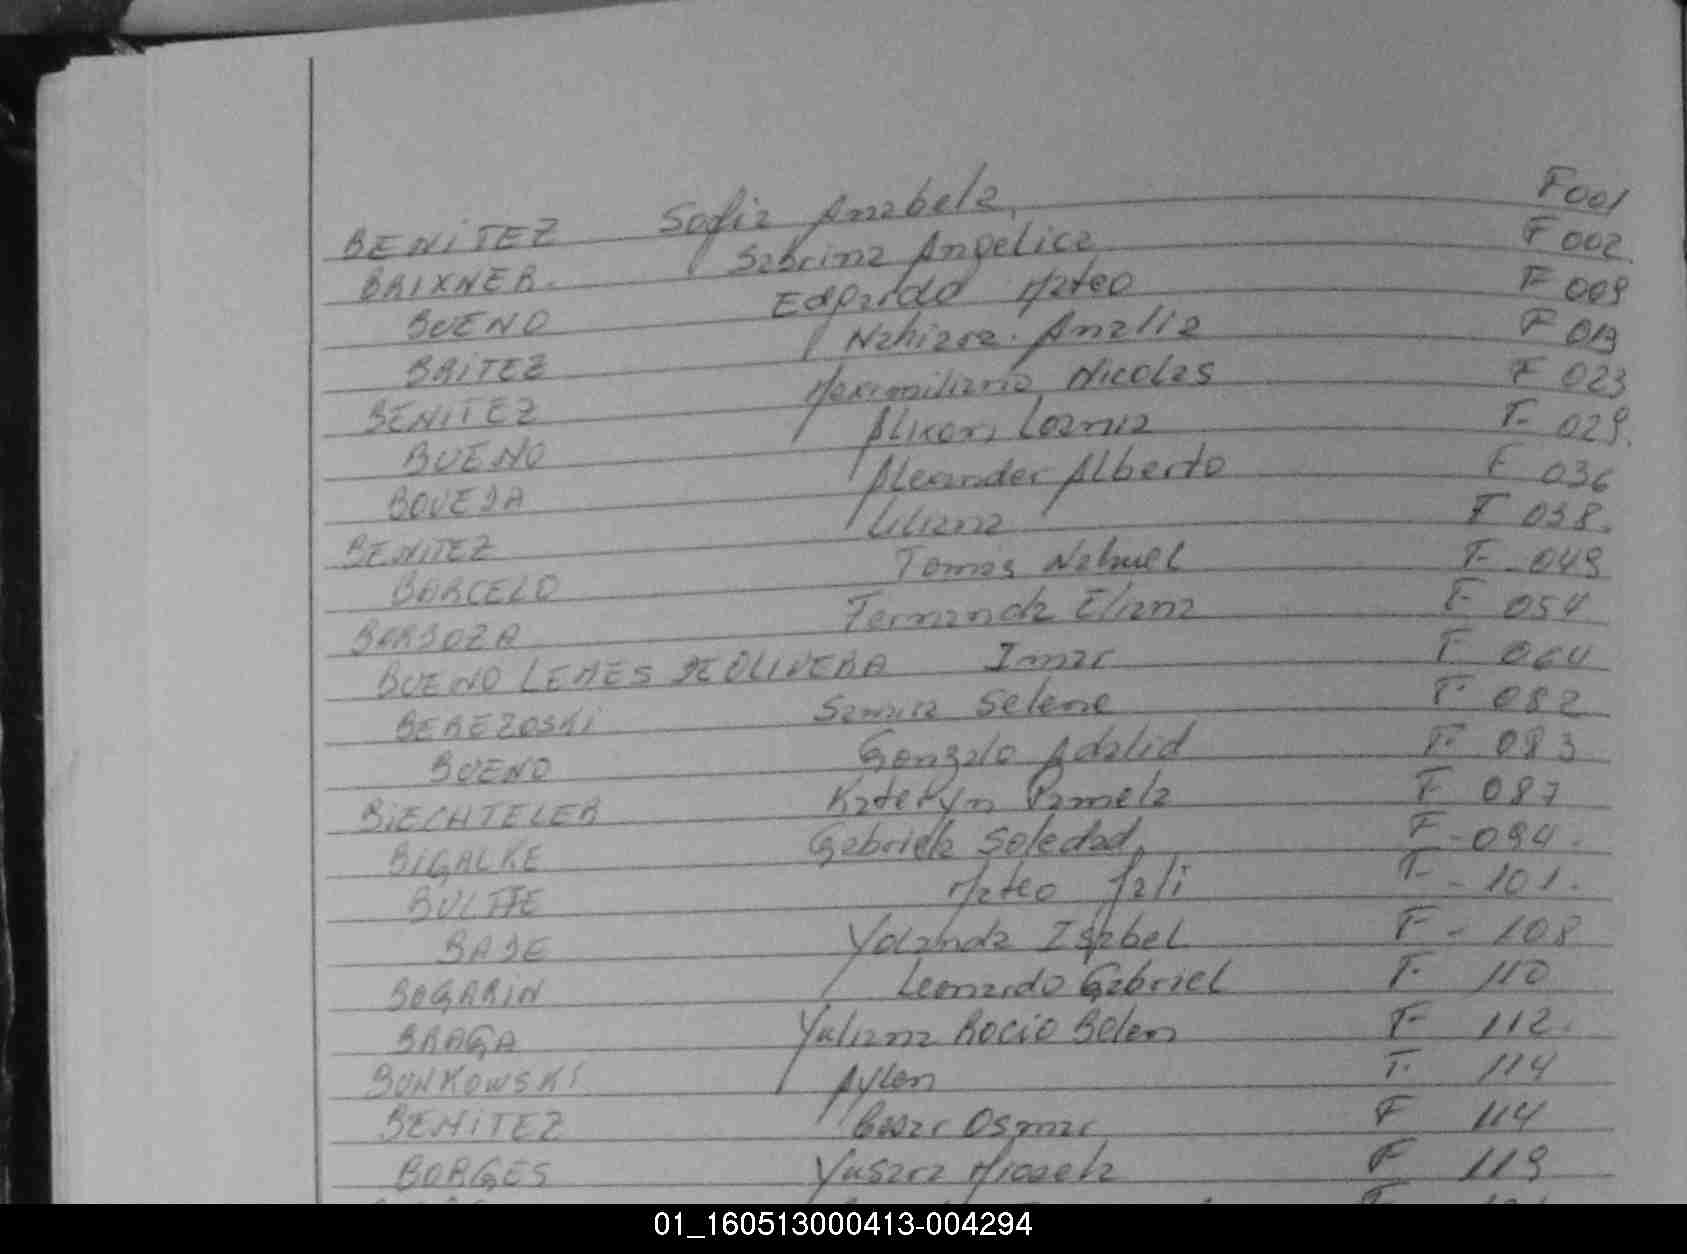 BENITEZ Sofia Anabela F001
BRIXNER Sabrina Angelica F 002
BUENO Edgardo Mateo F 009
BRITEZ Nahiara Analia F 019
BENITEZ Maximiliano Nicolas F 023
BUENO Alixon F- 029
BOVEDA Alexander Alberto F 036
BENITEZ Liliana F 038.
BARCELO Tomas Nahuel F- 049
BARBOZA Fernanda Eliana F 054
BUENO LEMES DE OLIVERA Imar F 064
BEREZOSKI Samira Selene F 082
BUENO Gonzalo Adalid F 083
BIECHTELER Kateryn Pamela F 087
BIGALKE Gabriela Soledad F-094.
BULFFE Mateo F-101.
BADE Yolanda Isabel F-108
BOGARIN Leonardo Gabriel F- 110
BRAGA Yuliana Rocio Belen F 112.
BONKOWSKI Aylen F. 114
BENITEZ Osmar F 114
BORGES Yusara Micaela F 119
01_160513000413-004294